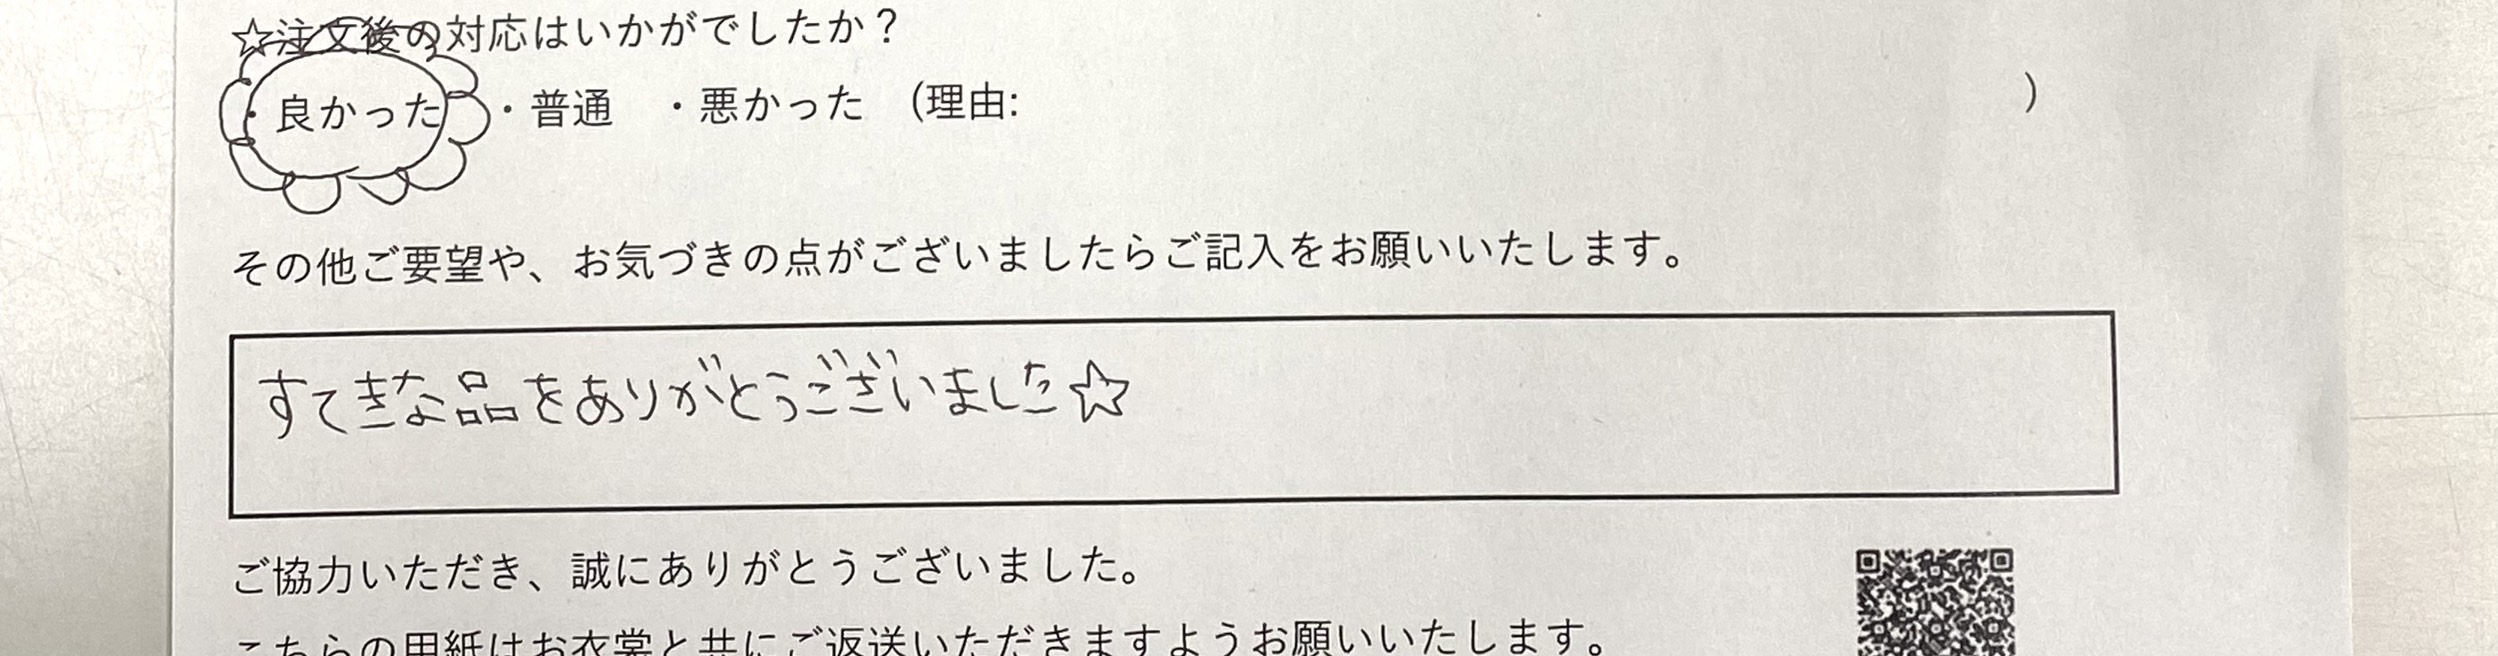 ☆注文後の対応はいかがでしたか？
・良かった ・普通 ・悪かった (理由: )
その他ご要望や、お気づきの点がございましたらご記入をお願いいたします。
すてきな品をありがとうございました☆
ご協力いただき、誠にありがとうございました。
こちらの用紙はお衣裳と共にご返送いただきますようお願いいたします。